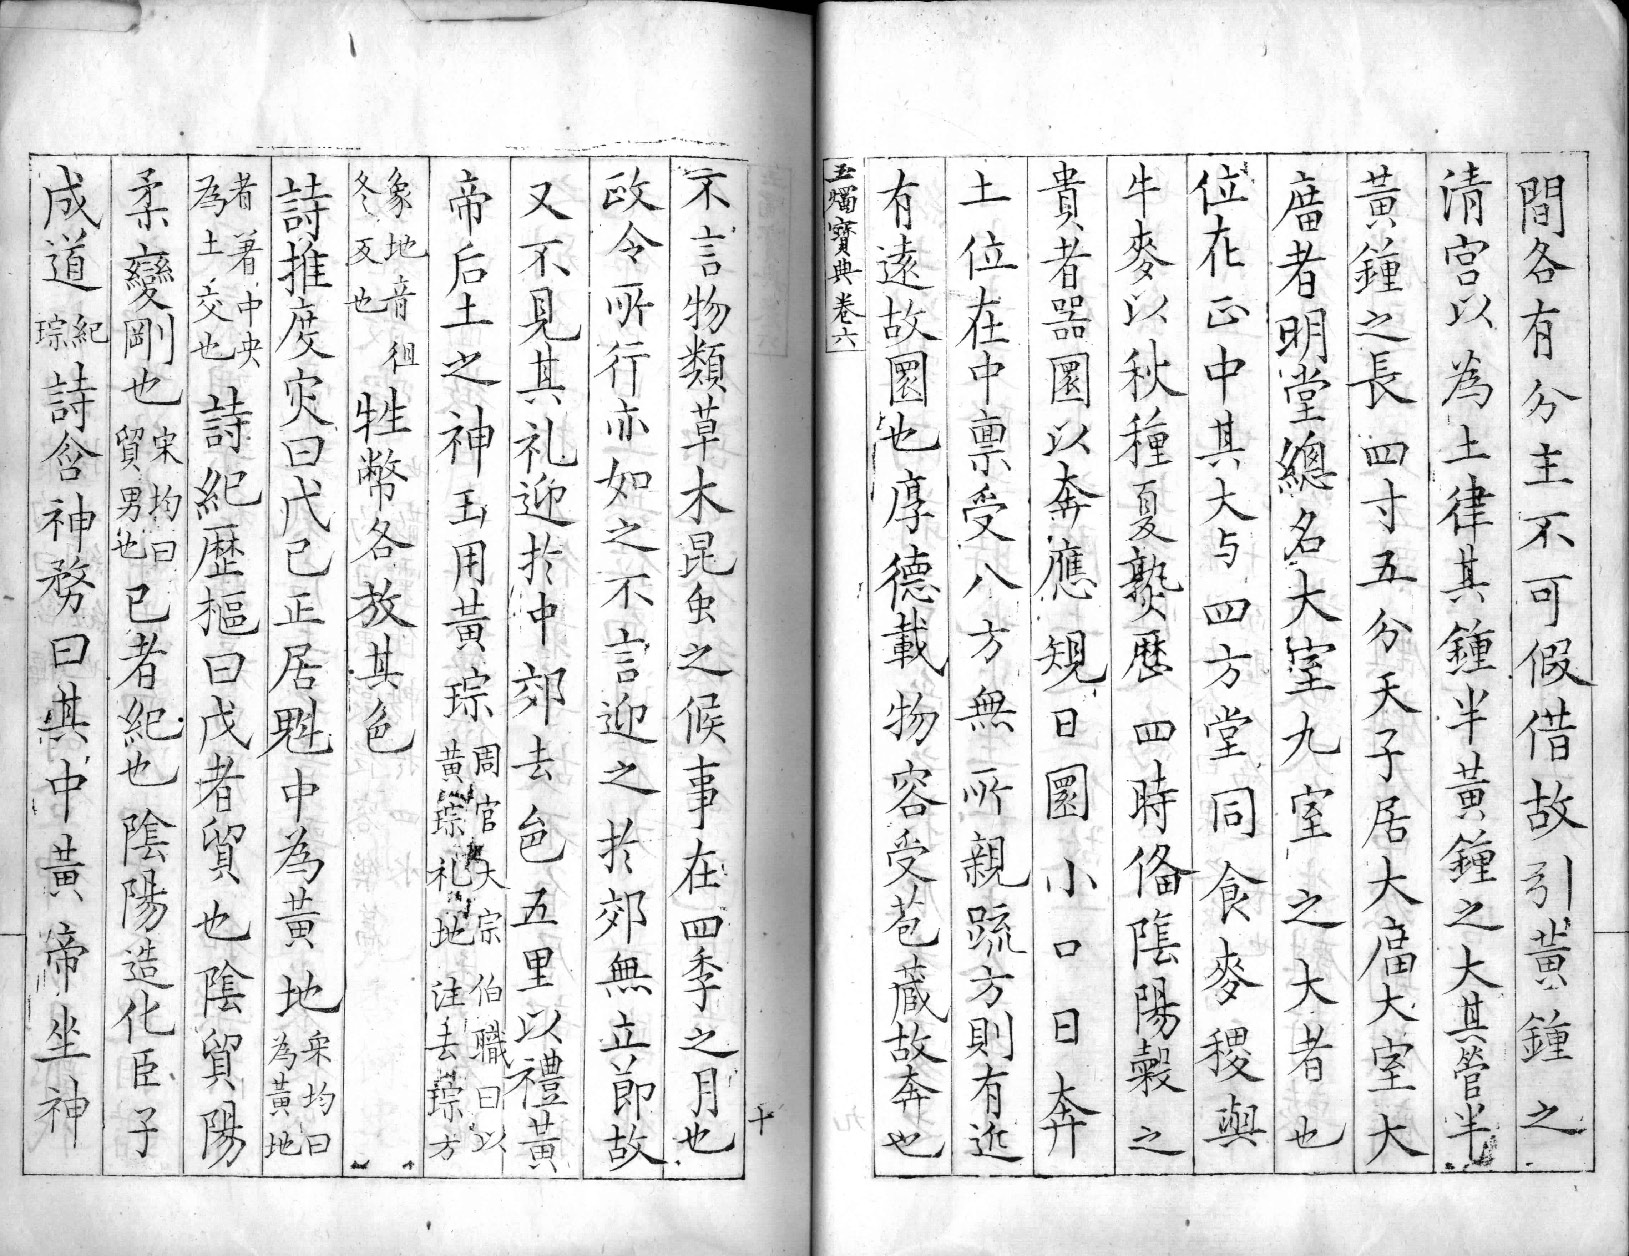 間各有分主不可假借故引黃鍾之
清宮以為土律其鍾半黃鍾之大其管半
黃鍾之長四寸五分天子居大廣大室大
廣者明堂總名大室九室之大者也
位在正中其大与四方堂同食麥稷與
牛麥以秋種夏熟歷四時俻陰陽穀之
貴者器圜以奔應規日圜小口日奔
土位在中禀受八方無所親疏方則有近
有遠故圜也厚德載物容受苞藏故奔也
玉燭寶典卷六
十
不言物類草木昆虫之候事在四季之月也
政令所行亦如之不言迎之於郊無立節故
又不見其礼迎於中郊去邑五里以禮黃
帝后土之神玉用黃琮周官大宗伯職曰以
黃琮礼地注云琮方
象地音徂
冬反也牲幣各放其色
詩推度灾曰戊己正居魁中為黃地宋均曰
為黃地
者著中央
為土交也詩紀歷樞曰戊者貿也陰貿陽
柔變剛也宋均曰
貿男也己者紀也陰陽造化臣子
成道紀
琮詩含神務曰其中黃帝坐神